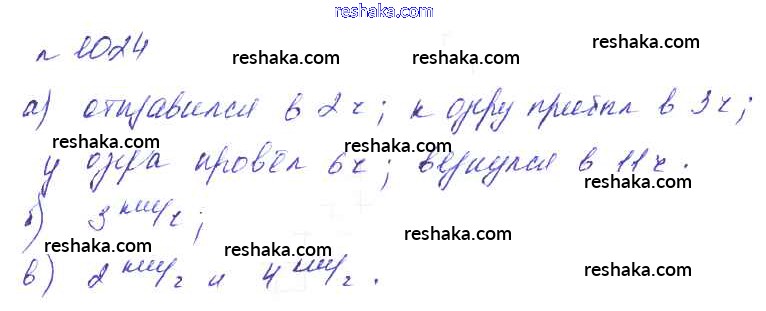 www.reshaka.com
n 1024
reshaka.com reshaka.com
а) отправился в 2 ч; к озеру прибыл в 3 ч;
reshaka.com reshaka.com reshaka.com
у озера провёл 6 ч; вернулся в 11 ч.
reshaka.com
б) 3 км/ч;
reshaka.com reshaka.com reshaka.com
в) 2 км/ч и 4 км/ч.
reshaka.com